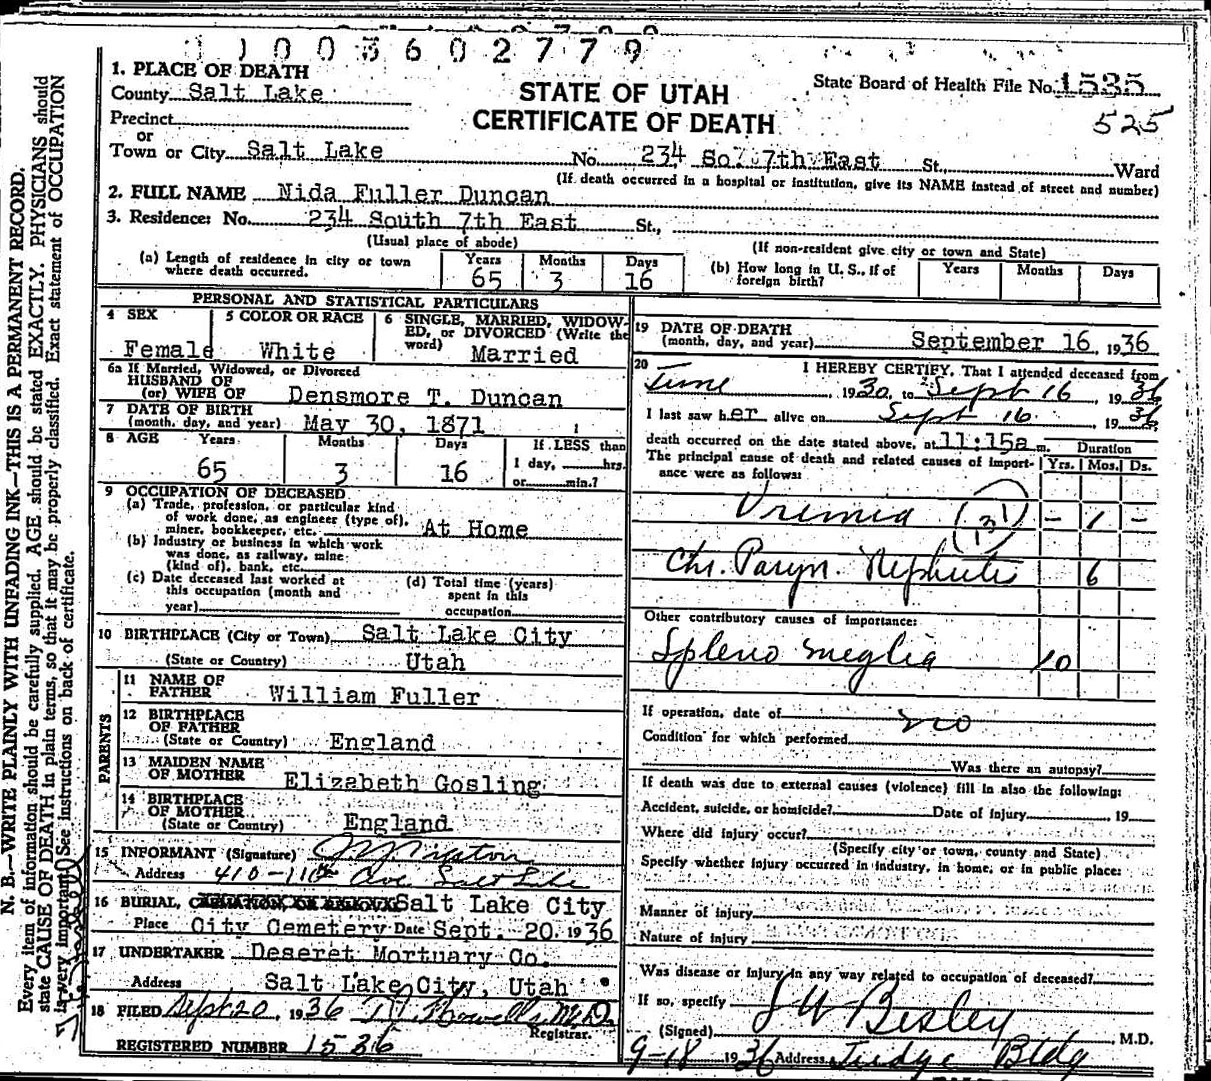 1003602779
1. PLACE OF DEATH
County Salt Lake
Precinct
or
Town or City Salt Lake
STATE OF UTAH
CERTIFICATE OF DEATH
State Board of Health File No. 1535
525
No. 234 So. 7th East St., Ward
(If death occurred in a hospital or institution, give its NAME instead of street and number)
2. FULL NAME Nida Fuller Duncan
3. Residence: No. 234 South 7th East St.,
(Usual place of abode)
(If non-resident give city or town and State)
(a) Length of residence in city or town where death occurred.
Years Months Days
65 3 16
(b) How long in U. S., if of foreign birth?
Years Months Days
PERSONAL AND STATISTICAL PARTICULARS
4 SEX
Female
5 COLOR OR RACE
White
6 SINGLE, MARRIED, WIDOW-
ED, or DIVORCED (Write the
word) Married
6a If Married, Widowed, or Divorced
HUSBAND OF
(or) WIFE OF Densmore T. Duncan
7 DATE OF BIRTH
(month, day, and year) May 30, 1871
8 AGE Years Months Days If LESS than
65 3 16 1 day, hrs.
or min.?
9 OCCUPATION OF DECEASED
(a) Trade, profession, or particular kind
of work done, as engineer (type of),
miner, bookkeeper, etc. At Home
(b) Industry or business in which work
was done, as railway, mine
(kind of), bank, etc.
(c) Date deceased last worked at
this occupation (month and
year)
(d) Total time (years)
spent in this
occupation
10 BIRTHPLACE (City or Town) Salt Lake City
(State or Country) Utah
PARENTS
11 NAME OF
FATHER William Fuller
12 BIRTHPLACE
OF FATHER
(State or Country) England
13 MAIDEN NAME
OF MOTHER Elizabeth Gosling
14 BIRTHPLACE
OF MOTHER
(State or Country) England
15 INFORMANT (Signature)
Address 410-11th Ave Salt Lake
16 BURIAL, CREMATION, OR REMOVAL Salt Lake City
Place City Cemetery Date Sept. 20, 1936
17 UNDERTAKER Deseret Mortuary Co.
Address Salt Lake City, Utah
18 FILED Sept 20, 1936 Howells M.D.
Registrar.
REGISTERED NUMBER 1536
19 DATE OF DEATH
(month, day, and year) September 16, 1936
20 I HEREBY CERTIFY, That I attended deceased from
June 1930, to Sept 16, 1936
I last saw her alive on Sept 16, 1936
death occurred on the date stated above, at 11:15a m.
The principal cause of death and related causes of import-
ance were as follows:
Duration
Yrs. Mos. Ds.
Uremia (131) - 1 -
Chr. Paryn. Nephritis 6
Other contributory causes of importance:
Spleno meglia 10
If operation, date of no
Condition for which performed
Was there an autopsy?
If death was due to external causes (violence) fill in also the following:
Accident, suicide, or homicide? Date of injury , 19
Where did injury occur?
(Specify city or town, county and State)
Specify whether injury occurred in industry, in home, or in public place:
Manner of injury
Nature of injury
Was disease or injury in any way related to occupation of deceased?
If so, specify
(Signed) J W Besley , M.D.
9-18 1936 Address Judge Bldg
N. B.—WRITE PLAINLY WITH UNFADING INK—THIS IS A PERMANENT RECORD.
Every item of information should be carefully supplied. AGE should be stated EXACTLY. PHYSICIANS should
state CAUSE OF DEATH in plain terms, so that it may be properly classified. Exact statement of OCCUPATION
is very important. See instructions on back of certificate.